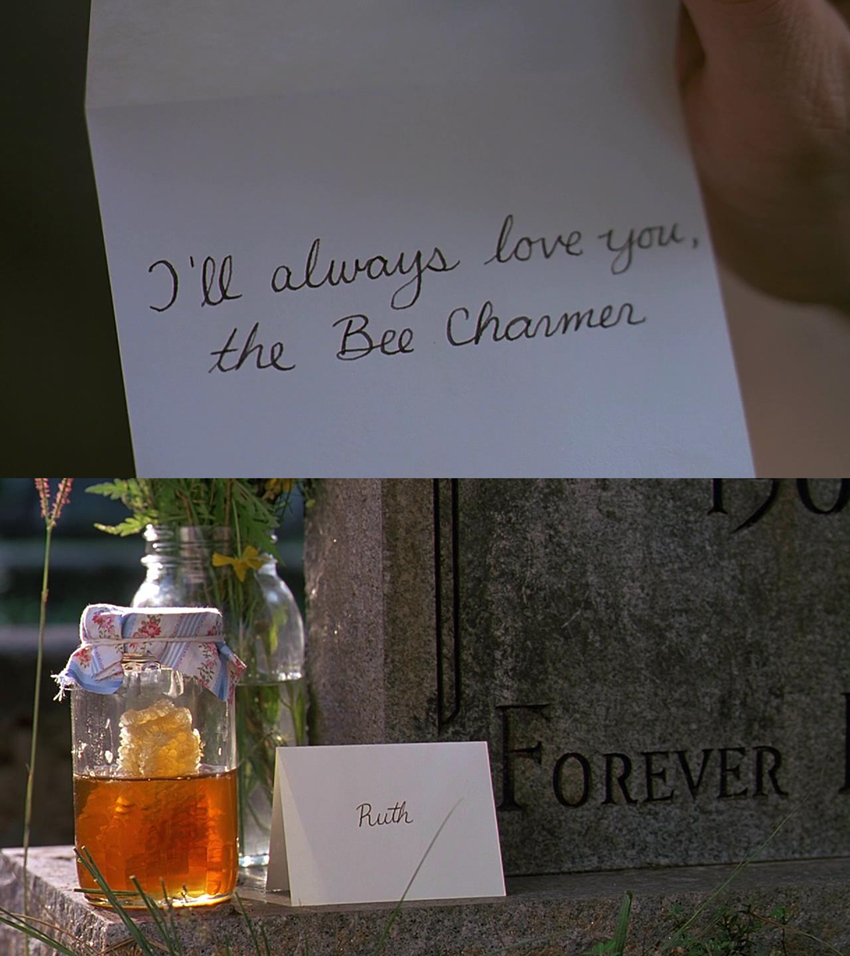 I'll always love you,
the Bee Charmer
Ruth
FOREVER